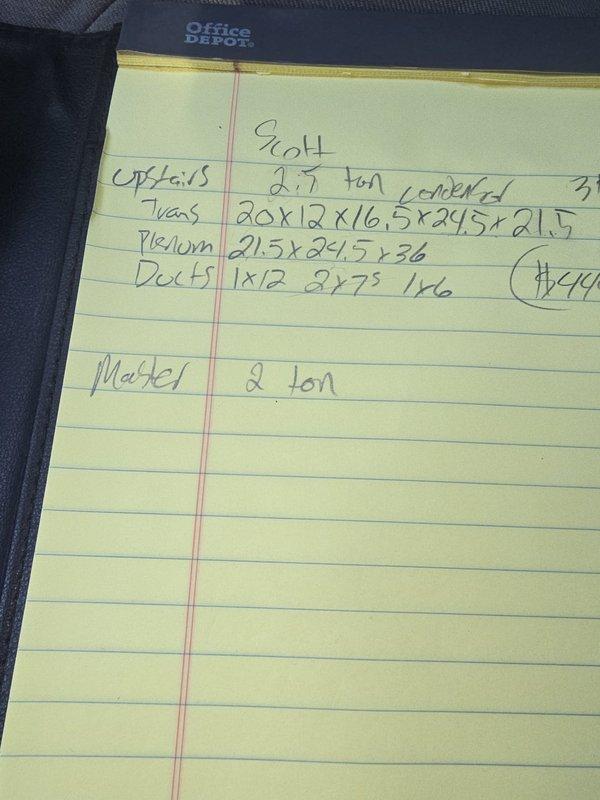 Office
DEPOT
Scott
Upstairs 2.5 ton condenser
Trans 20x12x16.5x24.5x21.5
Plenum 21.5x24.5x36
Ducts 1x12 2x7s 1x6 $44
Master 2 ton